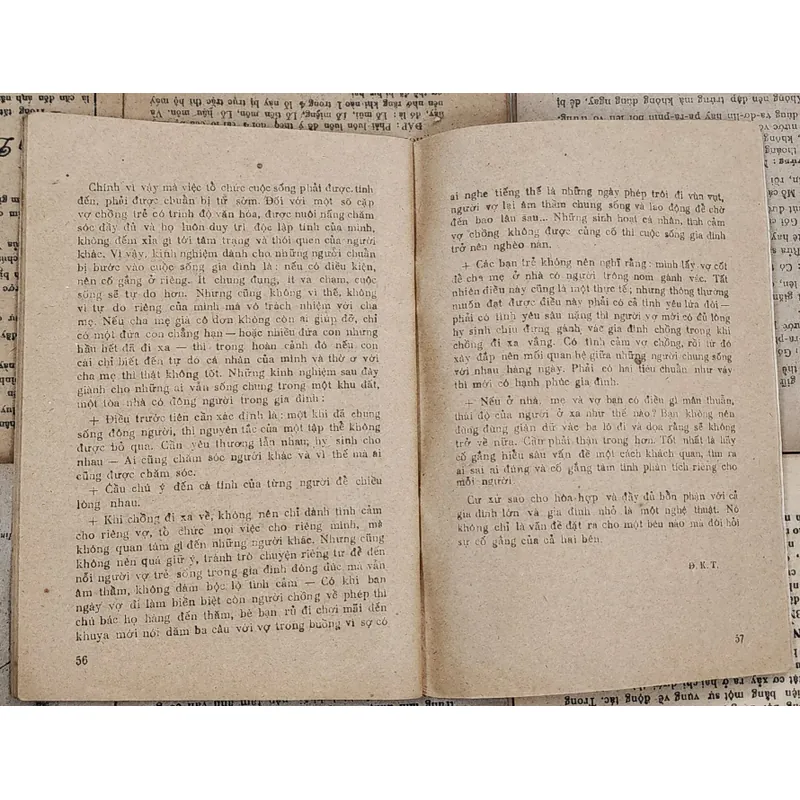 Chính vì vậy mà việc tổ chức cuộc sống phải được tính
đến, phải được chuẩn bị từ sớm. Đối với một số cặp
vợ chồng trẻ có trình độ văn hóa, được nuôi nấng chăm
sóc đầy đủ và họ luôn duy trì độc lập tính của mình,
không đếm xỉa gì tới tâm trạng và thói quen của người
khác. Vì vậy, kinh nghiệm dành cho những người chuẩn
bị bước vào cuộc sống gia đình là: nếu có điều kiện,
nên cố gắng ở riêng. Ít chung đụng, ít va chạm, cuộc
sống sẽ tự do hơn. Nhưng cũng không vì thế, không
vì tự do riêng của mình mà vô trách nhiệm với cha
mẹ. Nếu cha mẹ già cô đơn không còn ai giúp đỡ, chỉ
có một đứa con chẳng hạn — hoặc nhiều đứa con nhưng
hầu hết đã đi xa — thì trong hoàn cảnh đó nếu con
cái chỉ biết đến tự do cá nhân của mình và thờ ơ với
cha mẹ thì thật không tốt. Những kinh nghiệm sau đây
giành cho những ai vẫn sống chung trong một khu đất,
một tòa nhà có đông người trong gia đình:
+ Điều trước tiên cần xác định là: một khi đã chung
sống đông người, thì nguyên tắc của một tập thể không
được bỏ qua. Cần yêu thương lẫn nhau, hy sinh cho
nhau — Ai cũng chăm sóc người khác và vì thế mà ai
cũng được chăm sóc.
+ Cần chú ý đến cá tính của từng người để chiều
lòng nhau.
+ Khi chồng đi xa về, không nên chỉ dành tình cảm
cho riêng vợ, tổ chức mọi việc cho riêng mình, mà
không quan tâm gì đến những người khác. Nhưng cũng
không nên quá giữ ý, tránh trò chuyện riêng tư để đến
nỗi người vợ trẻ sống trong gia đình đông đúc mà vẫn
âm thầm, không dám bộc lộ tình cảm — Có khi ban
ngày vợ đi làm biền biệt còn người chồng về phép thì
chú bác họ hàng đến thăm, bè bạn rủ đi chơi mãi đến
khuya mới nói dăm ba câu với vợ trong buồng vì sợ có
56
ai nghe tiếng thế là những ngày phép trôi đi vùn vụt,
người vợ lại âm thầm chung sống và lao động để chờ
đến bao lâu sau... Những sinh hoạt cá nhân, tình cảm
vợ chồng không được củng cố thì cuộc sống gia đình
trở nên nghèo nàn.
+ Các bạn trẻ không nên nghĩ rằng: mình lấy vợ cốt
để cha mẹ ở nhà có người trông nom gánh vác. Tất
nhiên điều này cũng là một thực tế; nhưng thông thường
muốn đạt được điều này phải có cả tình yêu lứa đôi —
phải có tình yêu sâu nặng thì người vợ mới có đủ lòng
hy sinh chịu đựng gánh vác gia đình chồng trong khi
chồng đi xa vắng. Có tình cảm vợ chồng, rồi từ đó
xây đắp nên mối quan hệ giữa những người chung sống
với nhau hàng ngày. Phải có hai tiêu chuẩn như vậy
thì mới có hạnh phúc gia đình.
+ Nếu ở nhà, mẹ và vợ bạn có điều gì mâu thuẫn,
thái độ của người ở xa như thế nào? Bạn không nên
đùng đùng giận dữ vác ba lô đi và dọa rằng sẽ không
trở về nữa. Cần phải thận trọng hơn. Tốt nhất là hãy
cố gắng hiểu sâu vấn đề một cách khách quan, tìm ra
ai sai ai đúng và cố gắng tâm tình phân tích riêng cho
mỗi người.
Cư xử sao cho hòa hợp và đầy đủ bổn phận với cả
gia đình lớn và gia đình nhỏ là một nghệ thuật. Nó
không chỉ là vấn đề đặt ra cho một bên nào mà đòi hỏi
sự cố gắng của cả hai bên.
Đ.K.T.
57